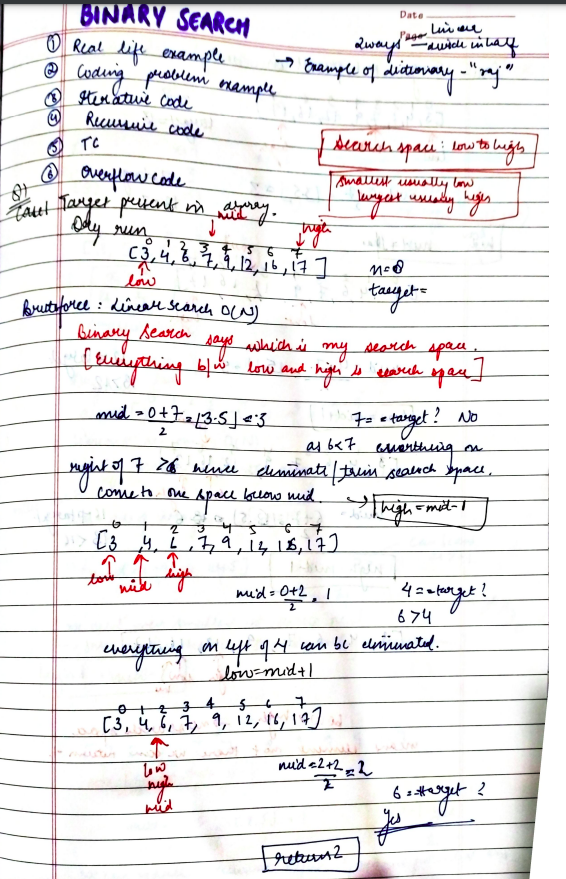 BINARY SEARCH
Date
Page
2ways linear
divide in half
① Real life example
→ Example of dictionary - "raj"
② Coding problem example
③ Iterative code
④ Recursive code
⑤ TC
⑥ Overflow code
Search space: low to high
Smallest usually low
largest usually high
Q1
Case1 Target present in array.
Dry run
mid
high
0 1 2 3 4 5 6 7
[3, 4, 6, 7, 9, 12, 16, 17]
low
n=8
target=
Bruteforce : Linear search O(N)
Binary Search says which is my search space.
[Everything b/w low and high is search space]
mid = 0+7/2 = ⌊3.5⌋ = 3
7 == target? No
as 6<7 everything on
right of 7 >6 hence eliminate/trim search space.
come to one space below mid. → high = mid-1
0 1 2 3 4 5 6 7
[3, 4, 6, 7, 9, 12, 16, 17]
low mid high
mid = 0+2/2 = 1
4 == target?
6>4
everything on left of 4 can be eliminated.
low=mid+1
0 1 2 3 4 5 6 7
[3, 4, 6, 7, 9, 12, 16, 17]
low
high
mid
mid = 2+2/2 = 2
6 == target ?
Yes
return 2